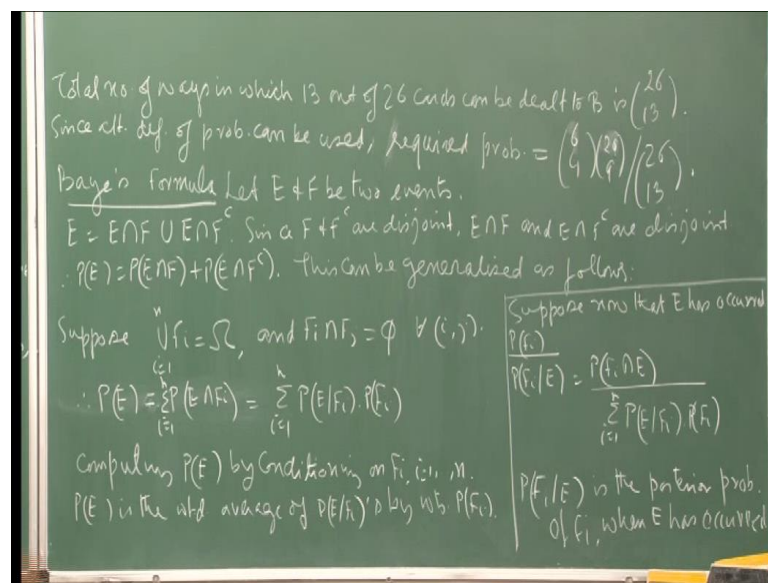 Total no. of ways in which 13 out of 26 cards can be dealt to B is (26 13).
Since alt. def. of prob. can be used, required prob. = (6 4)(20 9)/(26 13).
Baye's Formula Let E & F be two events.
E = E∩F ∪ E∩F^c. Since F & F^c are disjoint, E∩F and E∩F^c are disjoint
∴ P(E) = P(E∩F) + P(E∩F^c). This can be generalised as follows:
Suppose ⋃_{i=1}^{n} F_i = Ω, and F_i∩F_j = φ ∀ (i,j).
∴ P(E) = Σ_{i=1}^{n} P(E∩F_i) = Σ_{i=1}^{n} P(E/F_i).P(F_i)
Computing P(E) by Conditioning on F_i, i=1, , n.
P(E) is the wtd average of P(E/F_i)'s by wts. P(F_i).
Suppose now that E has occurred
P(F_i)
P(F_i/E) = P(F_i∩E) / Σ_{i=1}^{n} P(E/F_i) P(F_i)
P(F_i/E) is the posterior prob.
of F_i, when E has occurred